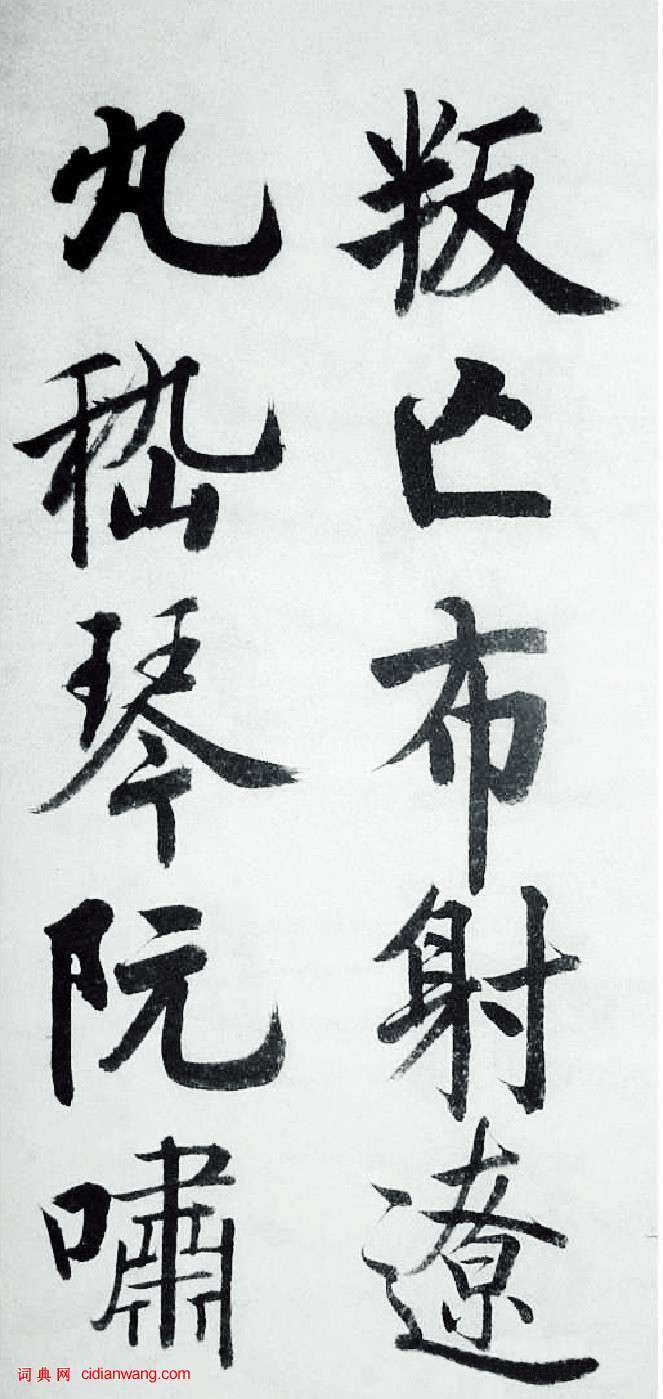 叛亡布射遼
丸嵇琴阮嘯
词典网 cidianwang.com